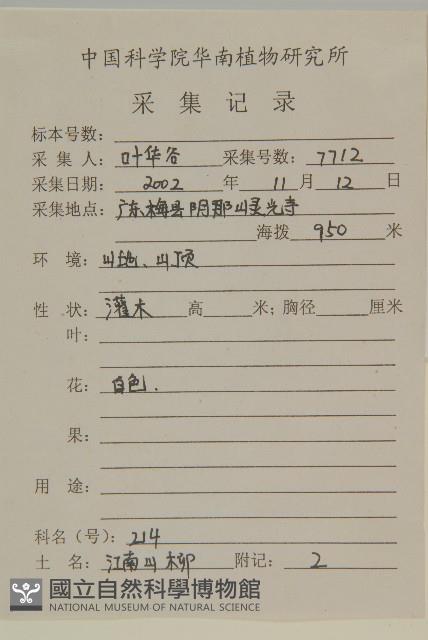 中国科学院华南植物研究所
采 集 记 录
标本号数：
采 集 人： 叶华谷 采集号数： 7712
采集日期： 2002 年 11 月 12 日
采集地点： 广东梅县阴那山灵光寺
海拨 950 米
环 境： 山地、山顶
性 状： 灌木 高 米；胸径 厘米
叶：
花： 白色.
果：
用 途：
科名（号）： 214
土 名： 江南山柳 附记： 2
國立自然科學博物館
NATIONAL MUSEUM OF NATURAL SCIENCE